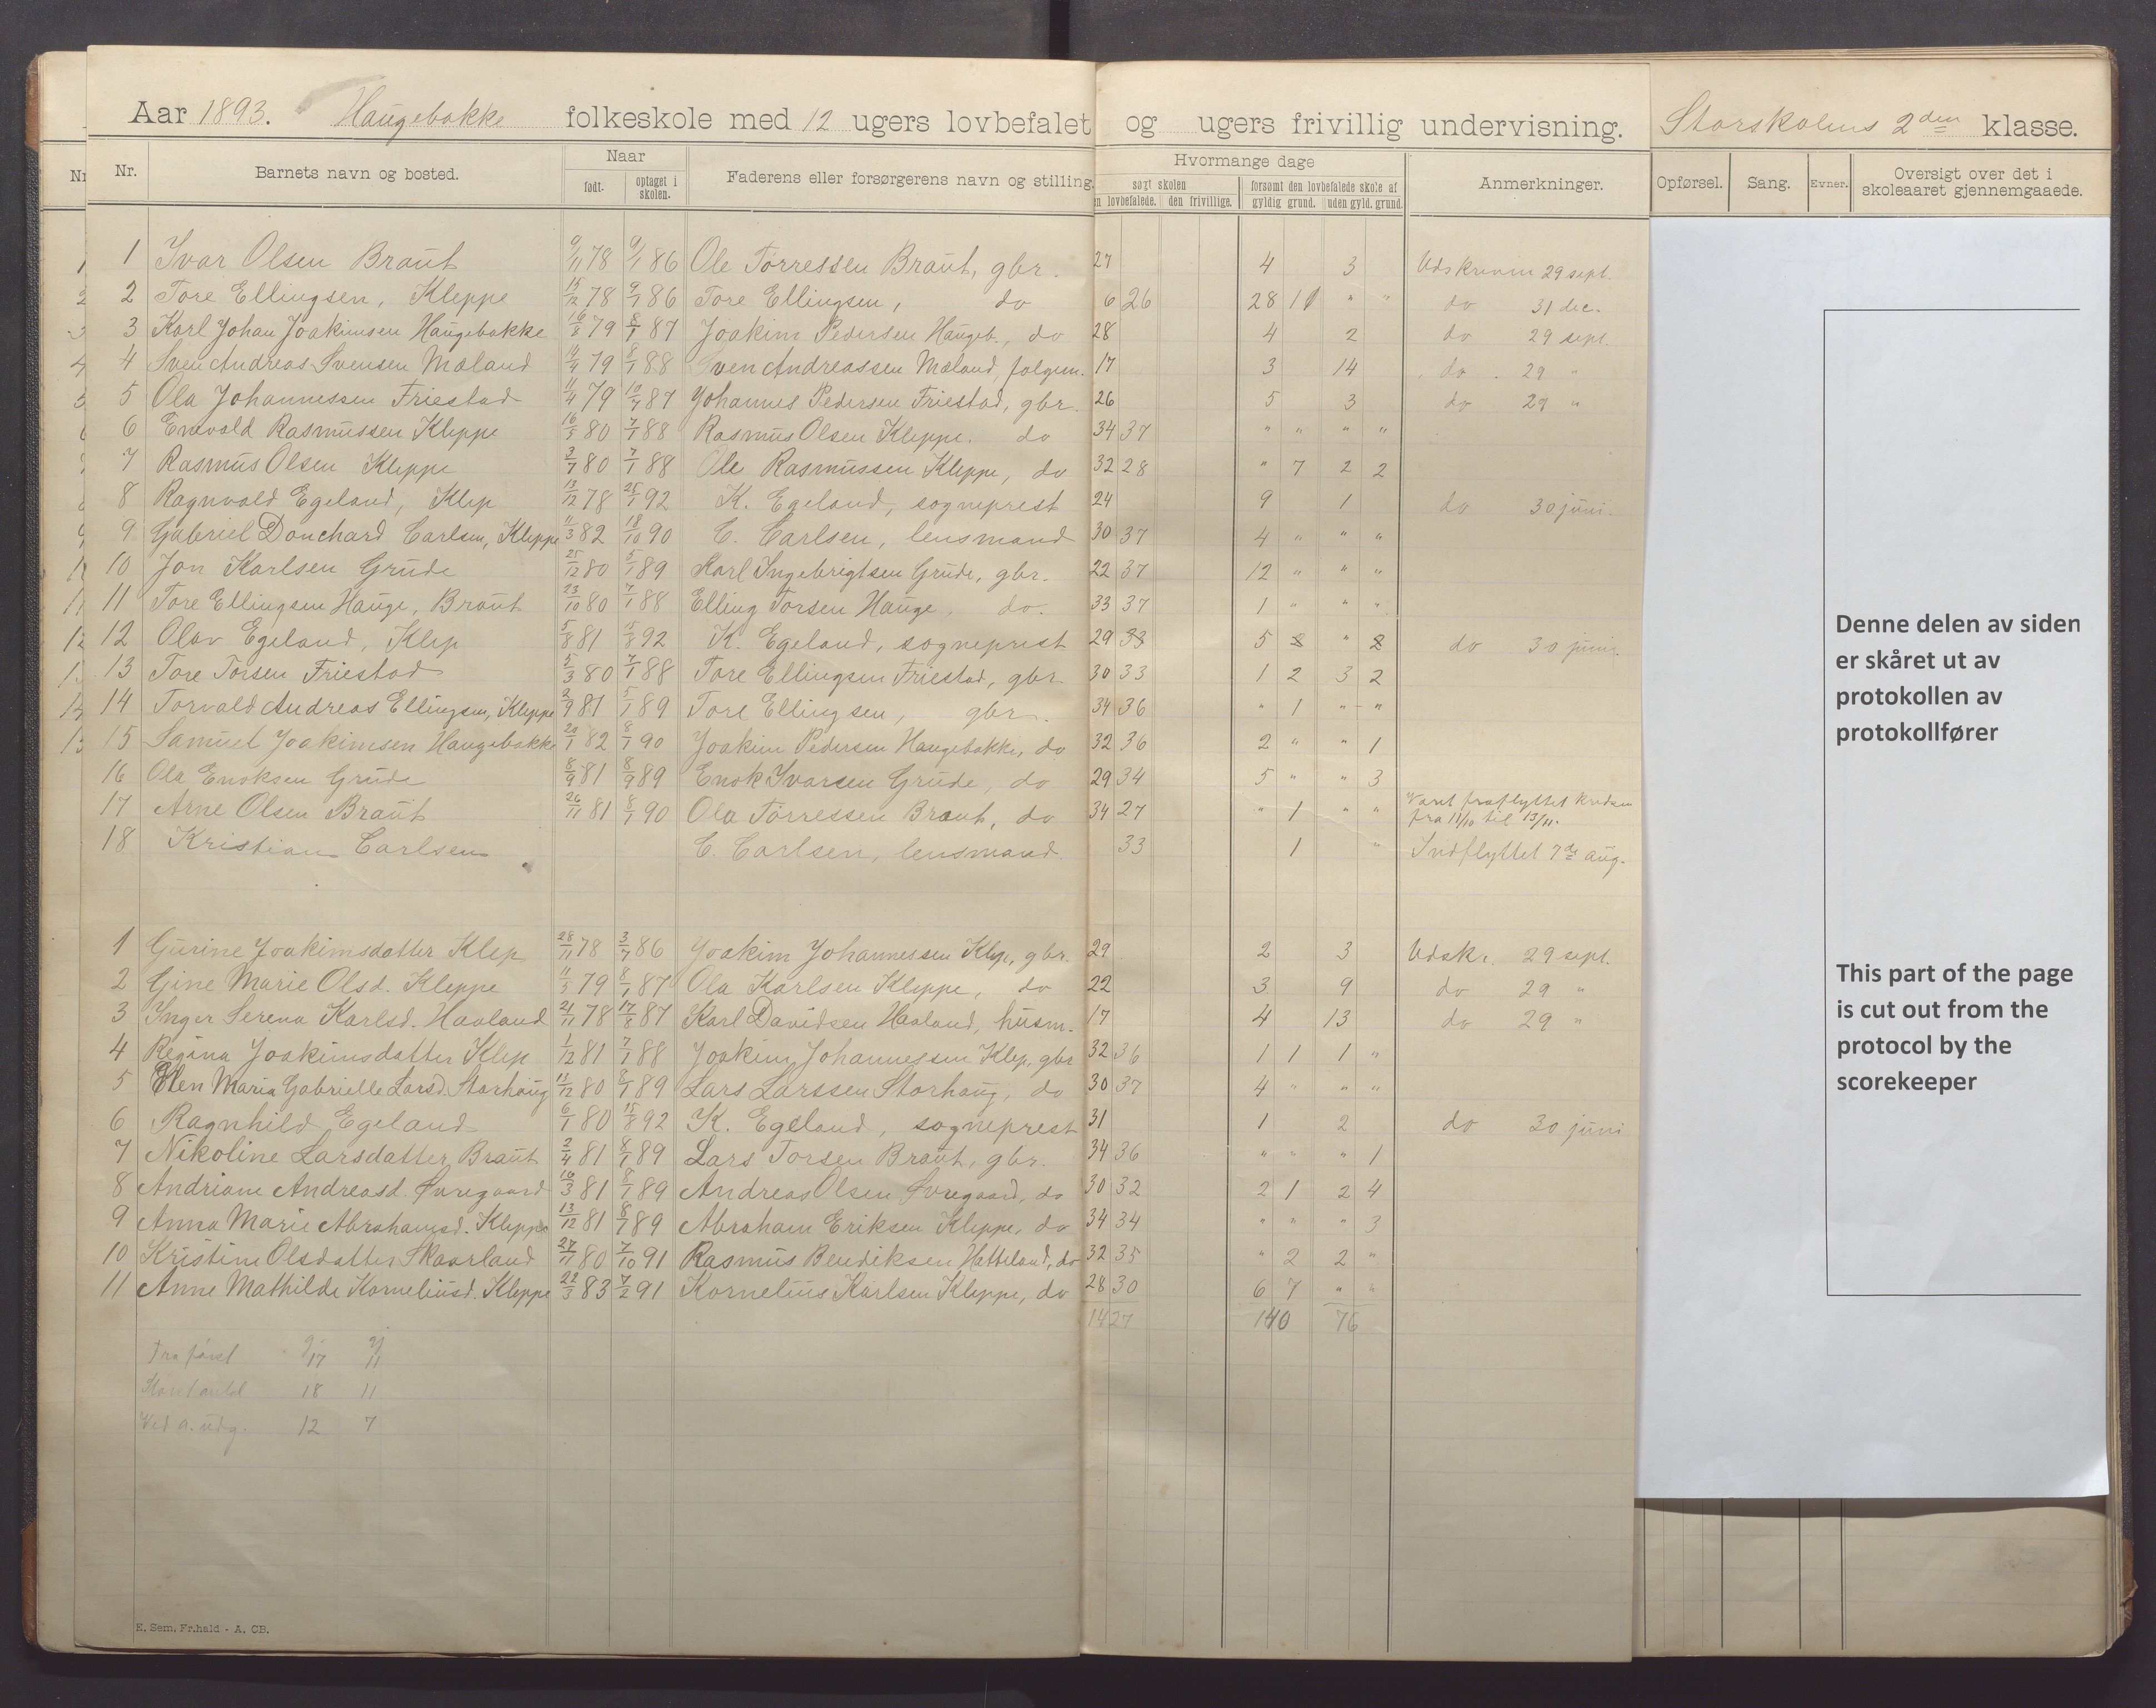 Aar 1893. Haugebakke folkeskole med 12 ugers lovbefalet og ugers frivillig undervisning. Storskolens 2den klasse.
Nr. Nr. Barnets navn og bosted. Naar født. optaget i skolen. Faderens eller forsørgerens navn og stilling. Hvormange dage søgt skolen n lovbefalede. den frivillige. forsømt den lovbefalede skole af gyldig grund. uden gyld. grund. Anmerkninger. Opførsel. Sang. Evner. Oversigt over det i skoleaaret gjennemgaaede.
1 Ivar Olsen Braut 9/11 78 9/1 86 Ole Torressen Braut, gbr. 27 4 3 Udskreven 29 sept.
2 Tore Ellingsen, Kleppe 15/12 78 9/1 86 Tore Ellingsen, do 6 26 28 11 " " do 31 dec.
3 Karl Johan Joakimsen Haugebakke 16/8 79 8/1 87 Joakim Pedersen Haugeb., do 28 4 2 do 29 sept.
4 Sven Andreas Svensen Mæland 14/4 79 8/1 88 Sven Andreassen Mæland, folgem. 17 3 14 do 29 "
5 Ola Johannessen Friestad 11/4 79 10/7 87 Johannes Pedersen Friestad, gbr. 26 5 3 do 29 "
6 Enevold Rasmussen Kleppe 16/5 80 7/1 88 Rasmus Olsen Kleppe. do 34 37 " " " "
7 Rasmus Olsen Kleppe 3/7 80 7/1 88 Ole Rasmussen Kleppe, do 32 28 " 7 2 2
8 Ragnvald Egeland, Klep 13/12 78 25/1 92 K. Egeland, sogneprest 24 9 1 do 30 juni.
9 Gabriel Donchard Carlsen, Kleppe 11/3 82 18/10 90 C. Carlsen, lensmand 30 37 4 " " "
10 Jon Karlsen Grude 25/12 80 5/1 89 Karl Ingebrigtsen Grude, gbr. 22 37 12 " " "
11 Tore Ellingsen Hauge, Braut 23/10 80 7/1 88 Elling Torsen Hauge, do. 33 37 1 " " "
12 Olav Egeland, Klep 5/8 81 15/8 92 K. Egeland, sogneprest 29 33 5 2 " 2 do 30 juni.
13 Tore Torsen Friestad 5/3 80 7/1 88 Tore Ellingsen Friestad, gbr. 30 33 1 2 3 2
14 Torvald Andreas Ellingsen, Kleppe 2/9 81 5/1 89 Tore Ellingsen, gbr. 34 36 " 1 " "
15 Samuel Joakimsen Haugebakke 20/1 82 8/1 90 Joakim Pedersen Haugebakke, do 32 36 2 " " 1
16 Ola Enoksen Grude 8/9 81 8/9 89 Enok Ivarsen Grude, do 29 34 5 " " 3
17 Arne Olsen Braut 26/11 81 8/1 90 Ola Torressen Braut, do 34 27 " 1 " " Været fraflyttet kredsen
fra 11/10 til 13/11.
18 Kristian Carlsen C. Carlsen, lensmand. 33 1 " Indflyttet 7de aug.
1 Gurine Joakimsdatter Klep 28/11 78 3/7 86 Joakim Johannessen Klep, gbr. 29 2 3 Udskr. 29 sept.
2 Gine Marie Olsd. Kleppe 11/5 79 8/1 87 Ola Karlsen Kleppe, do 22 3 9 do 29 "
3 Inger Serena Karlsd. Haaland 21/11 78 17/8 87 Karl Davidsen Haaland, husm. 17 4 13 do 29 "
4 Regina Joakimsdatter Klep 1/12 81 7/1 88 Joakim Johannessen Klep, gbr 32 36 1 1 1 "
5 Elen Maria Gabrielle Larsd. Storhaug 11/12 80 8/1 89 Lars Larssen Storhaug, do 30 37 4 " " "
6 Ragnhild Egeland 6/1 80 15/8 92 K. Egeland, sogneprest 31 1 2 do 30 juni
7 Nikoline Larsdatter Braut 2/4 81 8/1 89 Lars Torsen Braut, gbr. 34 36 " " " 1
8 Andriane Andreasd. Øvregaard 10/3 81 8/1 89 Andreas Olsen Øvregaard, do 30 32 2 1 2 4
9 Anna Marie Abrahamsd. Kleppe 13/12 81 8/1 89 Abraham Eriksen Kleppe, do 34 34 " " " 3
10 Kristine Olsdatter Skaarland 27/11 80 7/10 91 Rasmus Bendiksen Hatteland, do 32 35 " 2 2 "
11 Anne Mathilde Korneliusd. Kleppe 22/3 83 7/2 91 Kornelius Karlsen Kleppe, do 28 30 6 7 " "
1427 140 76
Fra først g. 17 pj 11
18 11
Ved a. udg. 12 7
E. Sem, Fr.hald - A. CB.
Denne delen av siden
er skåret ut av
protokollen av
protokollfører
This part of the page
is cut out from the
protocol by the
scorekeeper